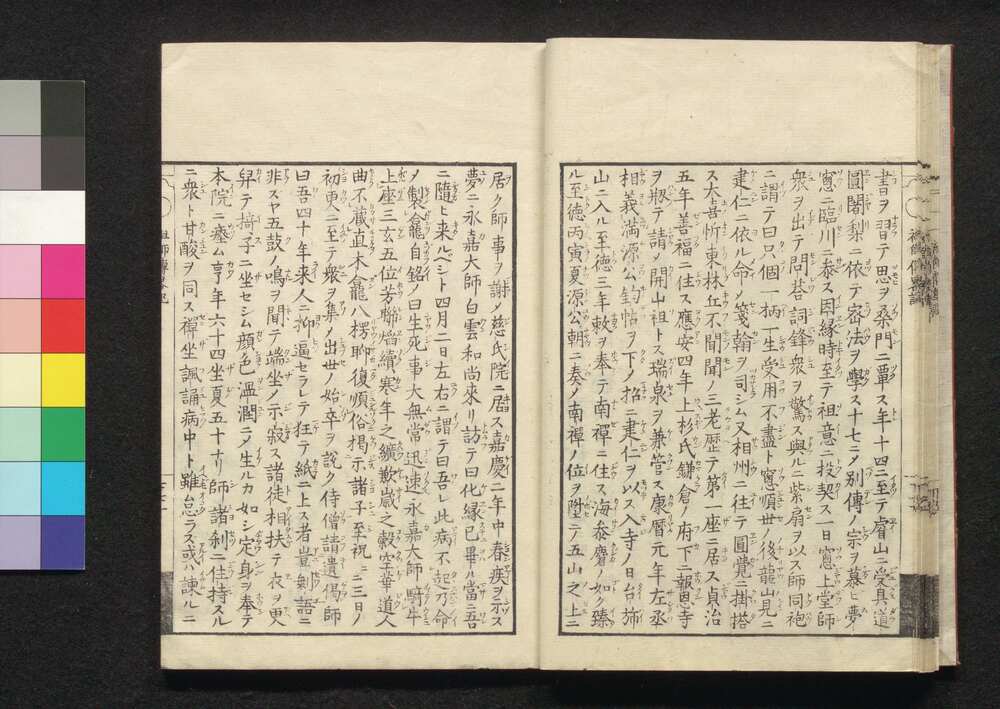 書ヲ習テ思ヲ桑門ニ覃ス年十四ニ至テ睿山ニ受具道
圓闍梨ニ依テ密法ヲ學ス十七ニメ別傳ノ宗ヲ慕ヒ夢
窓ニ臨川ニ泰ス因縁時至テ祖意ニ投契ス一日窓上堂師
衆ヲ出テ問荅詞鋒衆ヲ驚ス與ルニ紫扇ヲ以ス師同袍
ニ謂テ曰只個一柄一生受用不盡ト窓順世ノ後龍山見ニ
建仁ニ依ル命メ箋翰ヲ司シム又相州ニ往テ圓覺ニ掛搭
ス大喜忻東林丘不聞聞ノ三老歴テ第一座ニ居ス貞治
五年善福ニ住ス應安四年上杉氏鎌倉ノ府下ニ報恩寺
ヲ剏テ請メ開山祖トス瑞泉ヲ兼管ス康曆元年左丞
相義満源公鈞帖ヲ下メ招ニ建仁ヲ以ス入寺ノ日台斾
山ニ入ル至徳三年敕ヲ奉テ南禪ニ住ス海衆麕如ク臻
ル至徳丙寅夏源公朝ニ奏メ南禪ノ位ヲ陞テ五山之上ニ
居ク師事ヲ謝メ慈氏院ニ居ス嘉慶二年中春疾ヲ示ス
夢ニ永嘉大師白雲和尚來リ訪テ曰化縁已畢ル當ニ吾
ニ隨ヒ来ルベシト四月二日左右ニ謂テ曰吾レ此病不起乃命
メ製龕自銘メ曰生死事大無常迅速永嘉大師騎牛
上座三玄五位芳聯熖續寒年之纊歉歲之穀空華道人
曲不藏直木龕八楞聊復順俗揭示諸子至祝ニ三日ノ
初更ニ至テ衆ヲ集メ出世ノ始卒ヲ説ク侍僧請遺偈師
曰吾四十年来人ニ抑逼セラレテ狂テ紙ニ上ス者豈剰語ニ
非スヤ五鼓ノ鳴ヲ聞テ端坐メ示寂ス諸徒相扶テ衣ヲ更
舁テ掎子ニ坐セシム顔色溫潤ニメ生ルカ如シ定身ヲ奉テ
本院ニ塟ム享年六十四坐夏五十ナリ師諸刹ニ住持スル
ニ衆ト甘酸ヲ同ス禪坐諷誦病中ト雖怠ラス或ハ諫ルニ